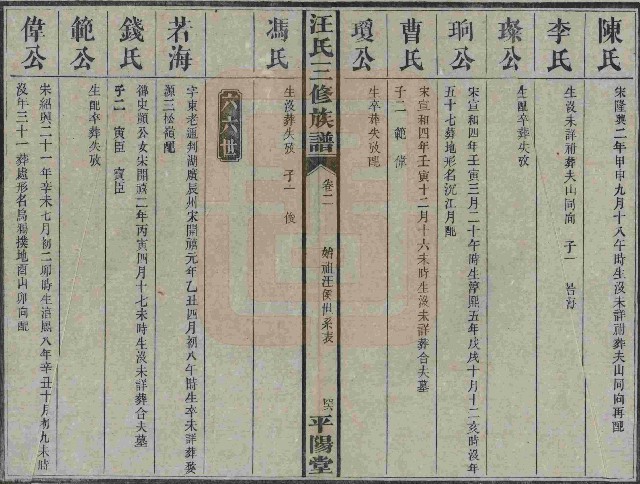 陳氏
宋隆興二年甲申九月十八午時生沒未詳祔葬夫山同向再配
李氏
生沒未詳祔葬夫山同向 子一 若海
璨公
生配卒葬失攷
珦公
宋宣和四年壬寅三月二十午時生淳熙五年戊戌十月十二亥時沒年
五十七葬地形名沉江月配
曹氏
宋宣和四年壬寅十二月十六未時生沒未詳葬合夫墓
子二 範 偉
瓊公
生卒葬失攷配
汪氏三修族譜
卷二
始祖汪侯世系表
平陽堂
馮氏
生沒葬失攷 子一 俊
六六世
若海
字東老通判湖廣辰州宋開禧元年乙丑四月初八午時生卒未詳葬婺
源三松嶺配
錢氏
史顏公女宋開禧二年丙寅四月十七未時生沒未詳葬合夫墓
子二 寅臣 賓臣
範公
生配卒葬失攷
偉公
宋紹興二十一年辛未七月初二卯時生淳熙八年辛丑十月初九未時
沒年三十一葬處形名烏鴉撲地酉山卯向配